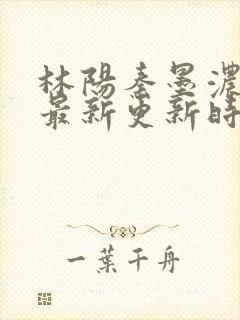 林陽秦墨濃
最新更新時
一葉千舟